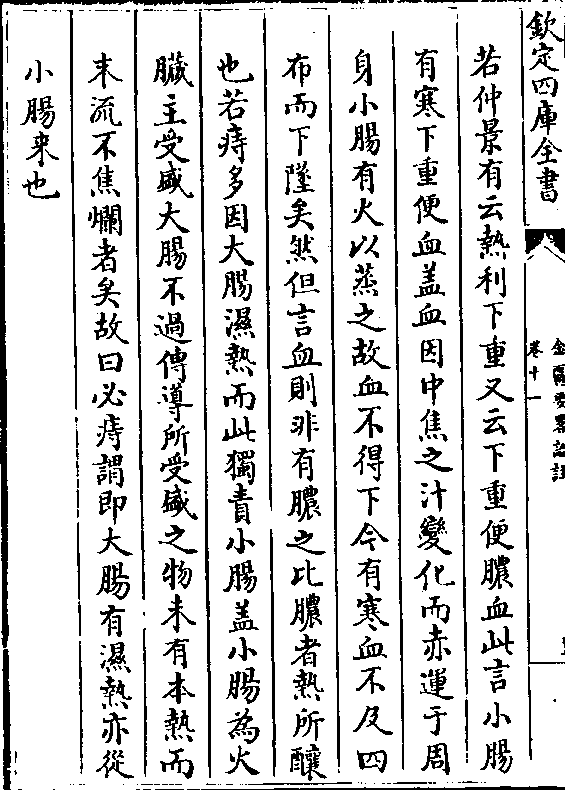 欽定四庫全書
金匱要畧論註
卷十一
若仲景有云熱利下重又云下重便膿血此言小腸
有寒下重便血盖血因中焦之汁變化而赤運于周
身小腸有火以蒸之故血不得下今有寒血不及四
布而下墜矣然但言血則非有膿之比膿者熱所釀
也若痔多因大腸濕熱而此獨責小腸盖小腸為火
臟主受盛大腸不過傳導所受盛之物未有本熱而
末流不焦爛者矣故曰必痔謂即大腸有濕熱亦從
小腸来也